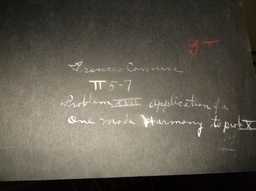 Frances Converse
II 5-7
Problem XIII application of a
One mode Harmony to prob X